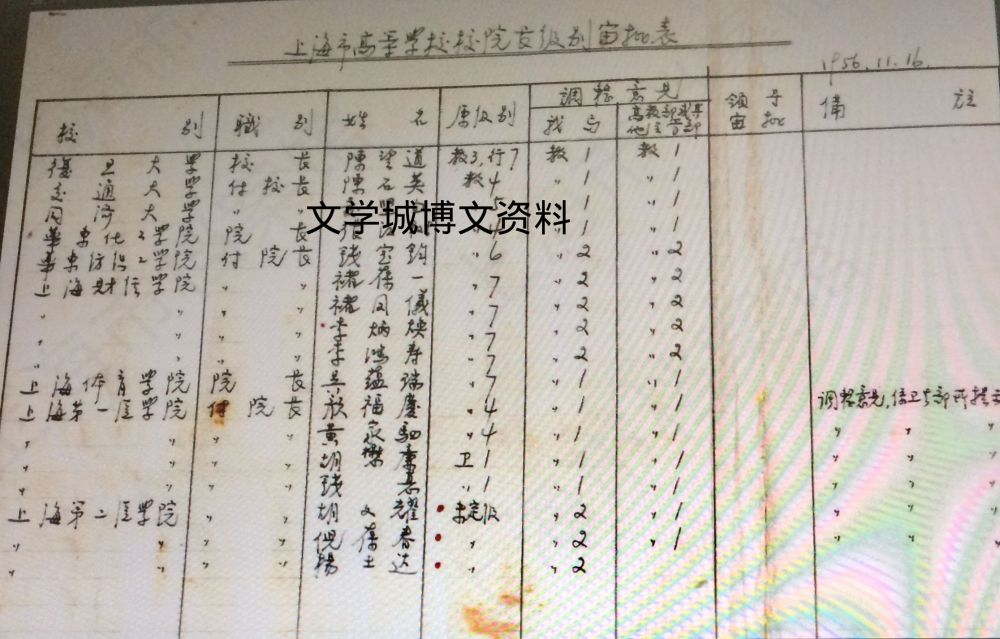 上海市高等学校校院长级别审批表
1956.11.16.
校别 職别 姓名 原级别 调整意見 领导审批 備註
我部 高教部或其他主管部
復旦大学 校長 陳望道 教3,行7 教1 教1
交通大学 付校長 陳石英 教4 〃1 〃1
同济大学 〃 〃5 〃1 〃1
文学城博文资料
華東化工学院 院長 〃1 〃1
華東纺织工学院 付院長 钱宝钧 〃6 〃2 〃2
上海财经学院 〃 褚葆一 〃7 〃2 〃2
〃 〃 褚凤儀 〃7 〃2 〃2
〃 〃 李炳焕 〃7 〃2 〃2
〃 〃 李鴻寿 〃7 〃2 〃2
上海体育学院 院長 吳蕴瑞 〃7 〃1 〃1
上海第一医学院 付院長 颜福慶 〃4 〃1 〃1 调整意見,係卫生部所提
〃 〃 黄家驷 〃4 〃1 〃1 〃 〃 〃
〃 〃 胡懋廉 卫1 〃1 〃1 〃 〃 〃
〃 〃 钱悳 〃1 〃1 〃1 〃 〃 〃
上海第二医学院 〃 胡文耀 未定级 〃2 〃1 〃 〃
〃 〃 倪葆春 〃 〃2 〃1 〃 〃
〃 〃 楊士达 〃 〃2